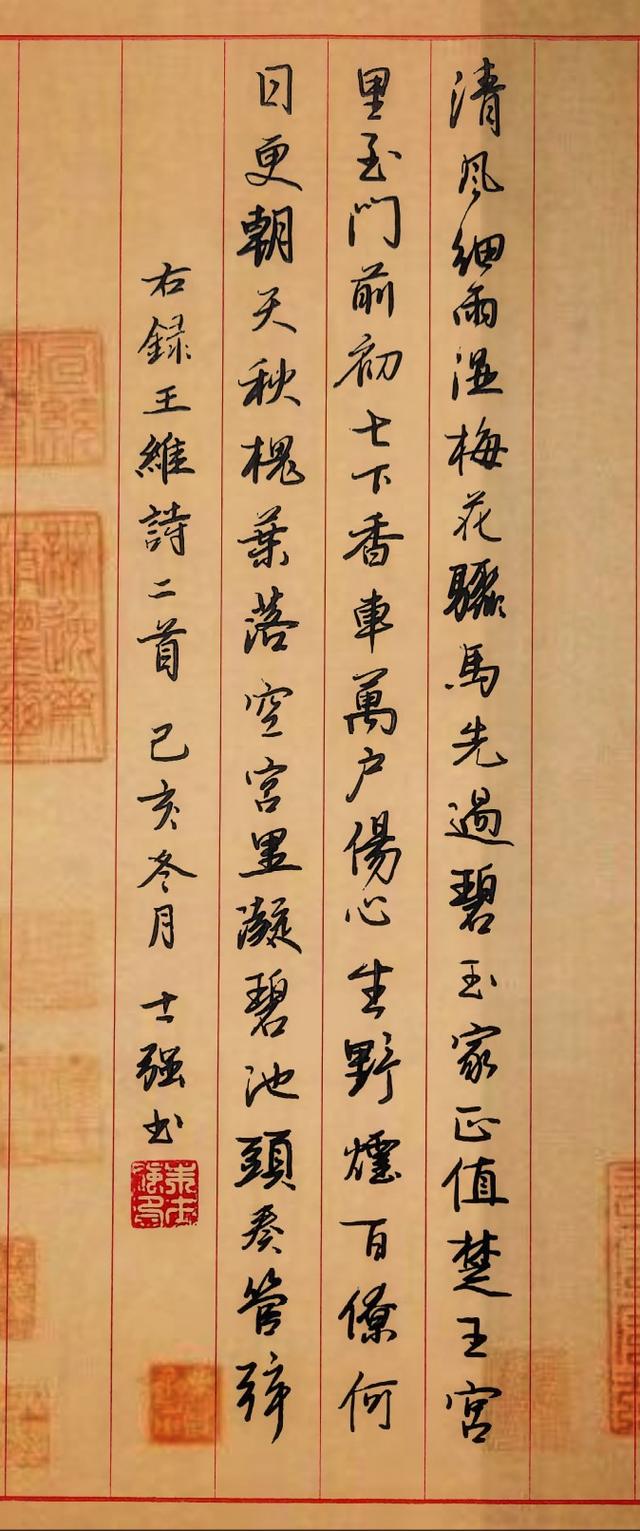 清風細雨湿梅花驟馬先過碧玉家正值楚王宮
里至門前初七下香車萬户傷心生野煙百僚何
日更朝天秋槐葉落空宮里凝碧池頭奏管弦
右録王維詩二首 己亥冬月 士强书